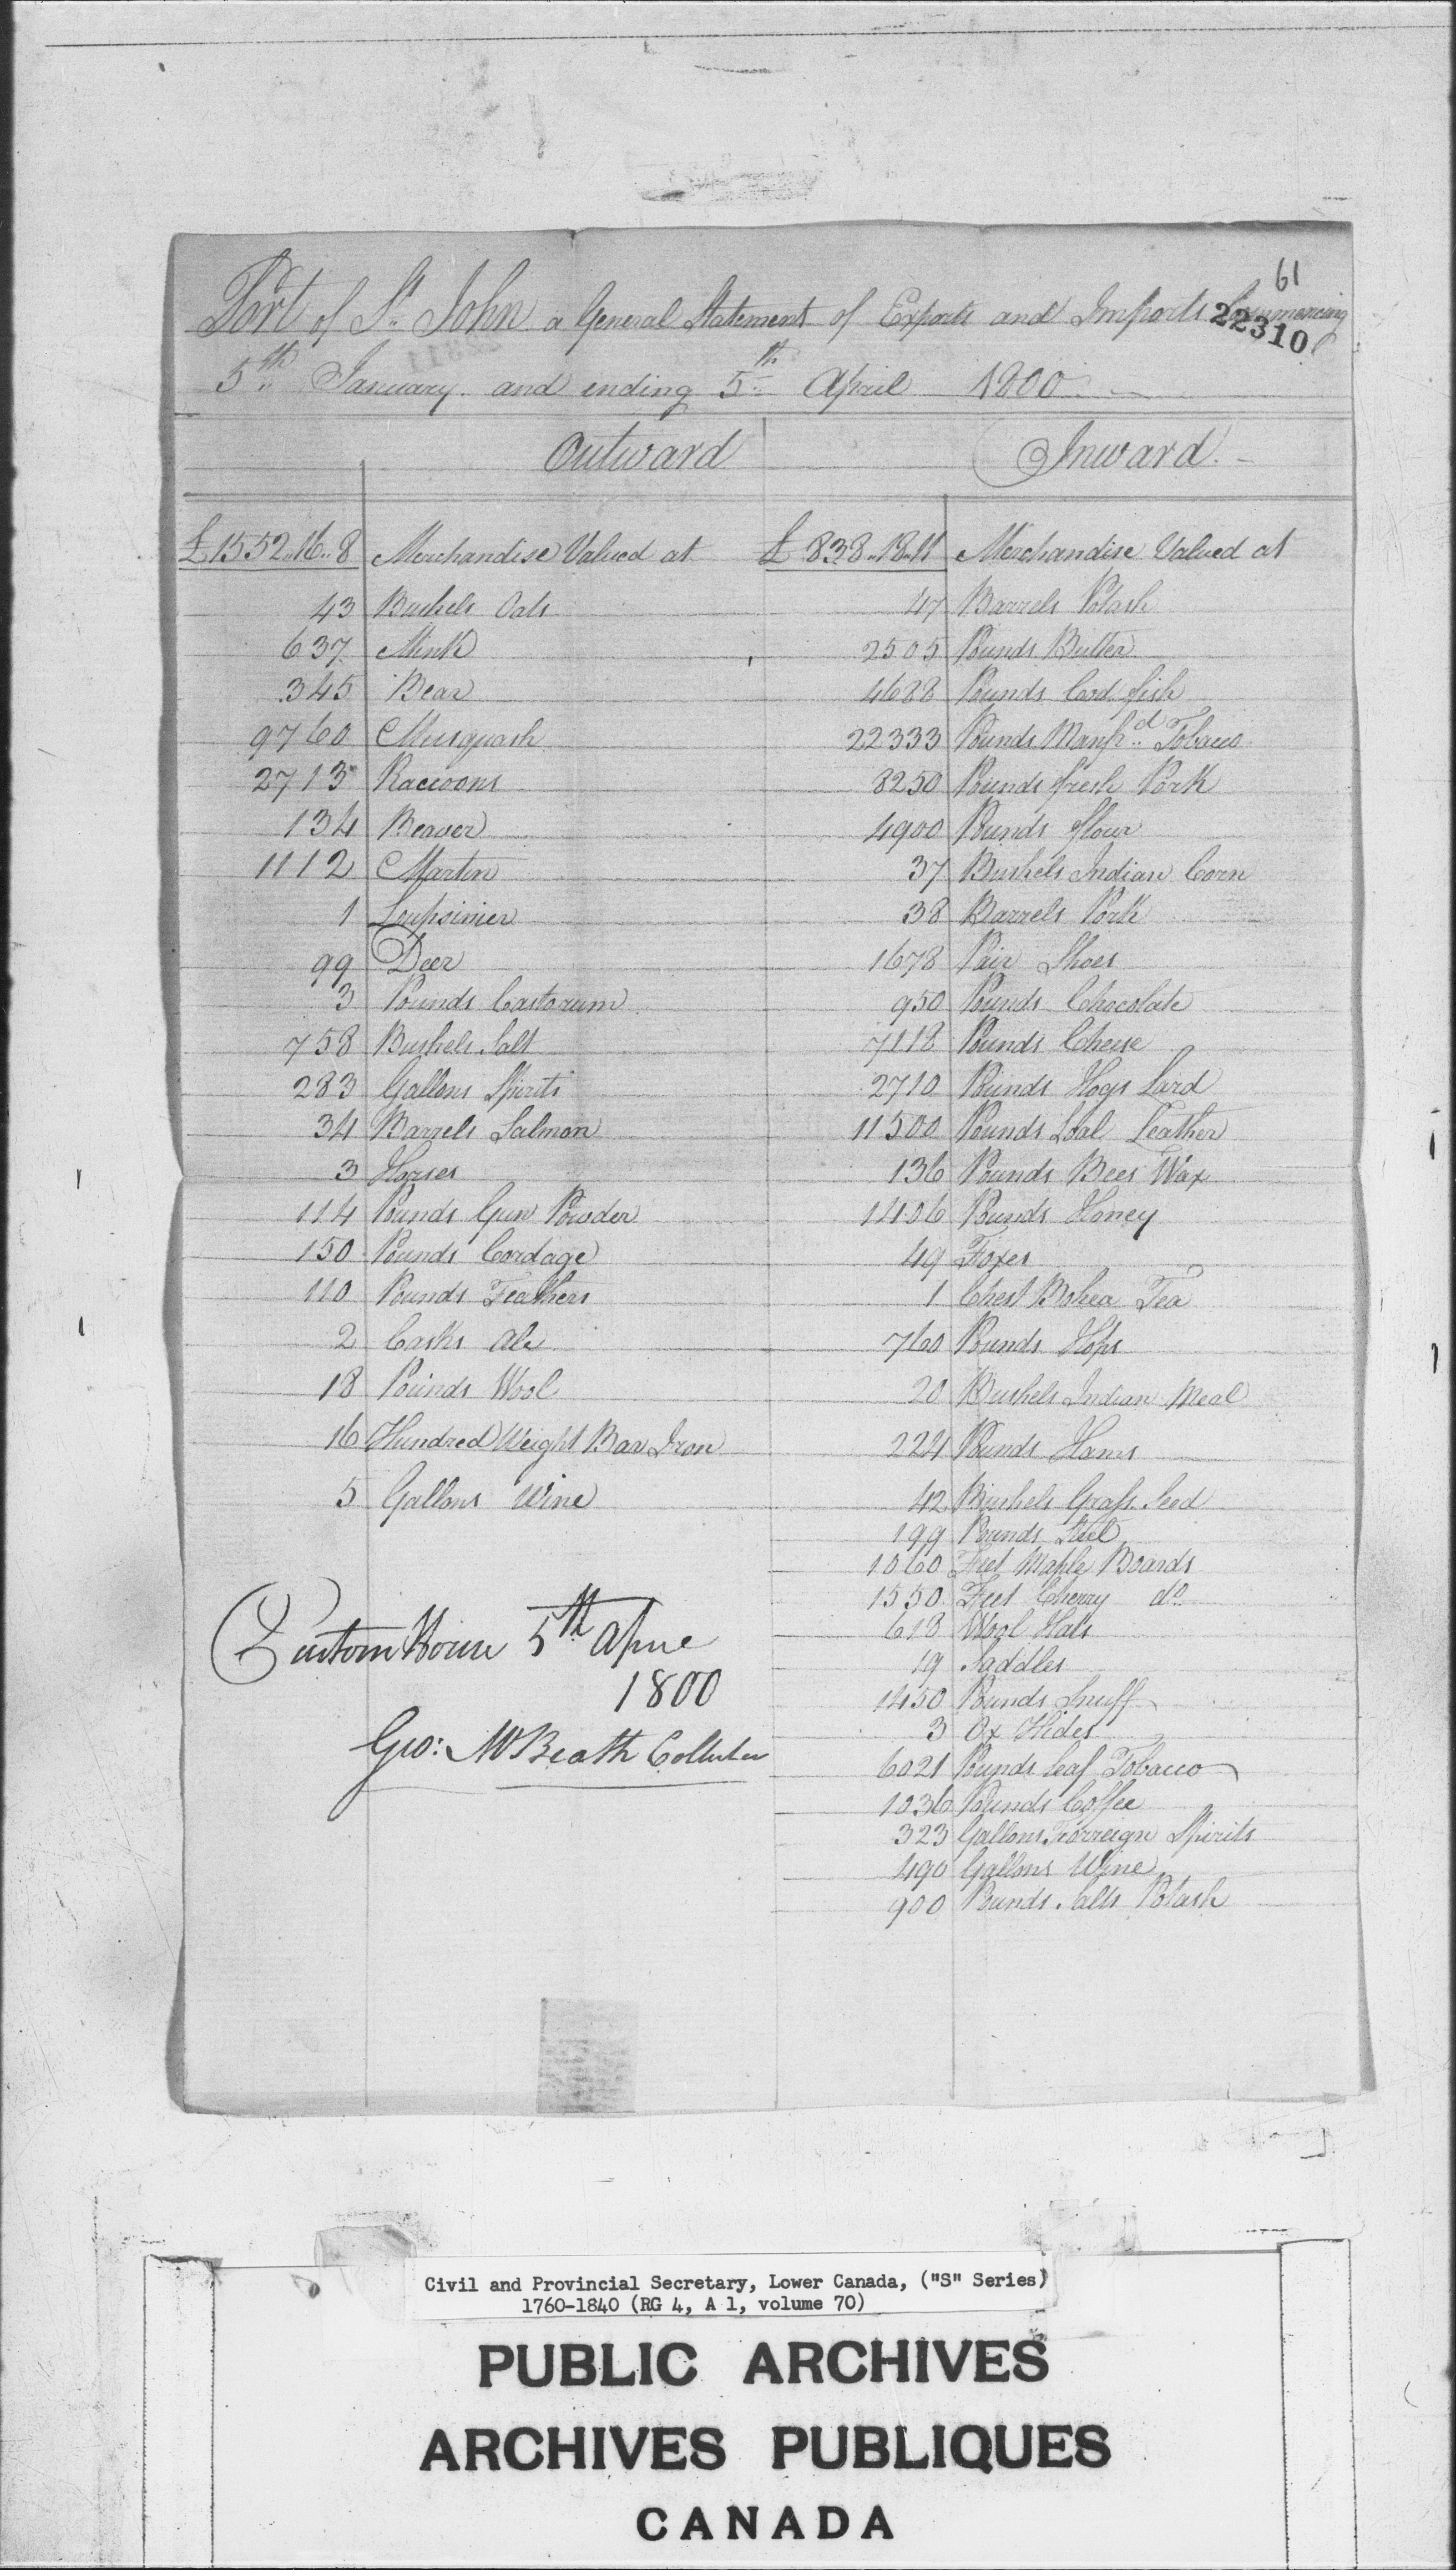 61
Port of St. John a General Statement of Exports and Imports Commencing
22310
5th January and ending 5th April 1800
Outward
£1552..16..8 Merchandise Valued at
43 Bushels Oats
637 Mink
345 Bear
9760 Musquash
2713 Raccoons
134 Beaver
1112 Martin
1 Loupsirvier
99 Deer
3 Pounds Castorum
758 Bushels Salt
283 Gallons Spirits
34 Barrels Salmon
3 Horses
114 Pounds Gun Powder
150 Pounds Cordage
110 Pounds Feathers
2 Casks Ale
18 Pounds Wool
16 Hundred Weight Bar Iron
5 Gallons Wine
Custom House 5th Aprie
1800
Geo: McBeath Collector
Inward
£838..18..11 Merchandise Valued at
47 Barrels Potash
2505 Pounds Butter
4688 Pounds Cod fish
22333 Pounds Manfd. Tobacco
8250 Pounds fresh Pork
4900 Pounds flour
37 Bushels Indian Corn
38 Barrels Pork
1678 Pair Shoes
950 Pounds Chocolate
7118 Pounds Cheese
2710 Pounds Hogs Lard
11500 Pounds Soal Leather
136 Pounds Bees Wax
1406 Pounds Honey
49 Foxes
1 Chest Bohea Tea
760 Pounds Hops
20 Bushels Indian Meal
224 Pounds Hams
42 Bushels Grass Seed
199 Pounds Steel
1060 Feet Maple Boards
1550 Feet Cherry do
618 Wool Hats
19 Saddles
1450 Pounds Snuff
3 Ox Hides
6021 Pounds leaf Tobacco
1036 Pounds Coffee
323 Gallons Forreign Spirits
490 Gallons Wine
900 Pounds Salts Potash
Civil and Provincial Secretary, Lower Canada, ("S" Series)
1760-1840 (RG 4, A 1, volume 70)
PUBLIC ARCHIVES
ARCHIVES PUBLIQUES
CANADA